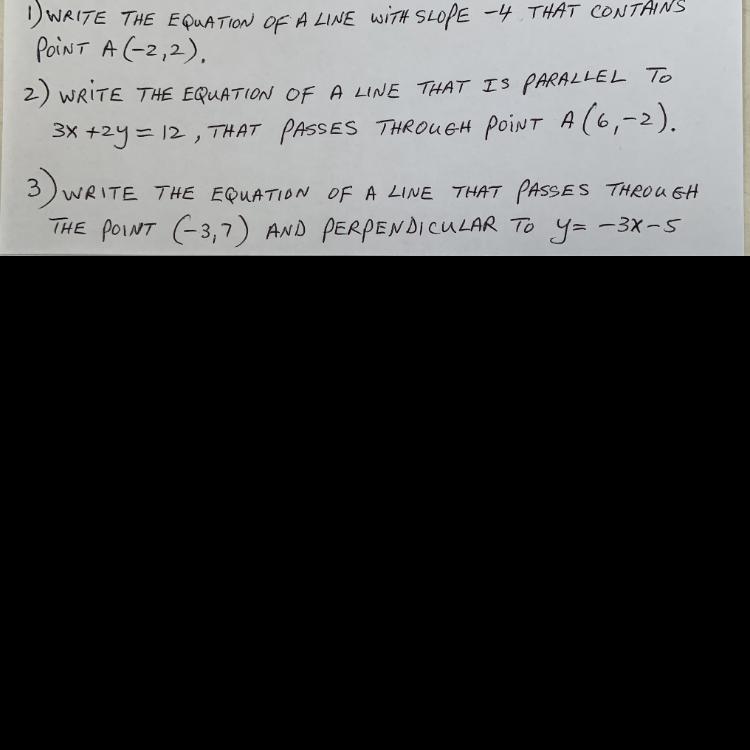 1) WRITE THE EQUATION OF A LINE WITH SLOPE -4 THAT CONTAINS
POINT A (-2,2).
2) WRITE THE EQUATION OF A LINE THAT IS PARALLEL TO
3x +2y = 12 , THAT PASSES THROUGH POINT A (6,-2).
3) WRITE THE EQUATION OF A LINE THAT PASSES THROUGH
THE POINT (-3,7) AND PERPENDICULAR TO y= -3x-5